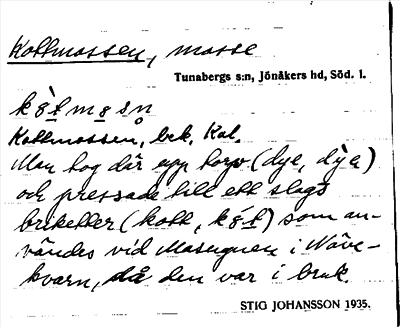 Kollmossen, mosse
Tunabergs s:n, Jönåkers hd, Söd. l.
Kollmossen, bek. Kol.
Man tog där upp torv (dye, dýa)
och pressade till ett slags
briketter (koll, k) som an-
vändes vid Masugnen i Näve-
kvarn, då den var i bruk.
STIG JOHANSSON 1935.